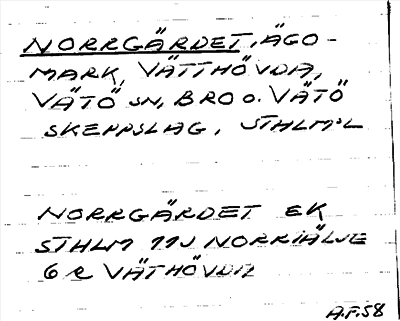 NORRGÄRDET, ÄGO-
MARK, VÄTTHÖVDA,
VÄTÖ SN, BRO O. VÄTÖ
SKEPPSLAG, STHLM'L
NORRGÄRDET EK
STHLM 11J NORRTÄLJE
6 e VÄTHÖVDA
A.F.58